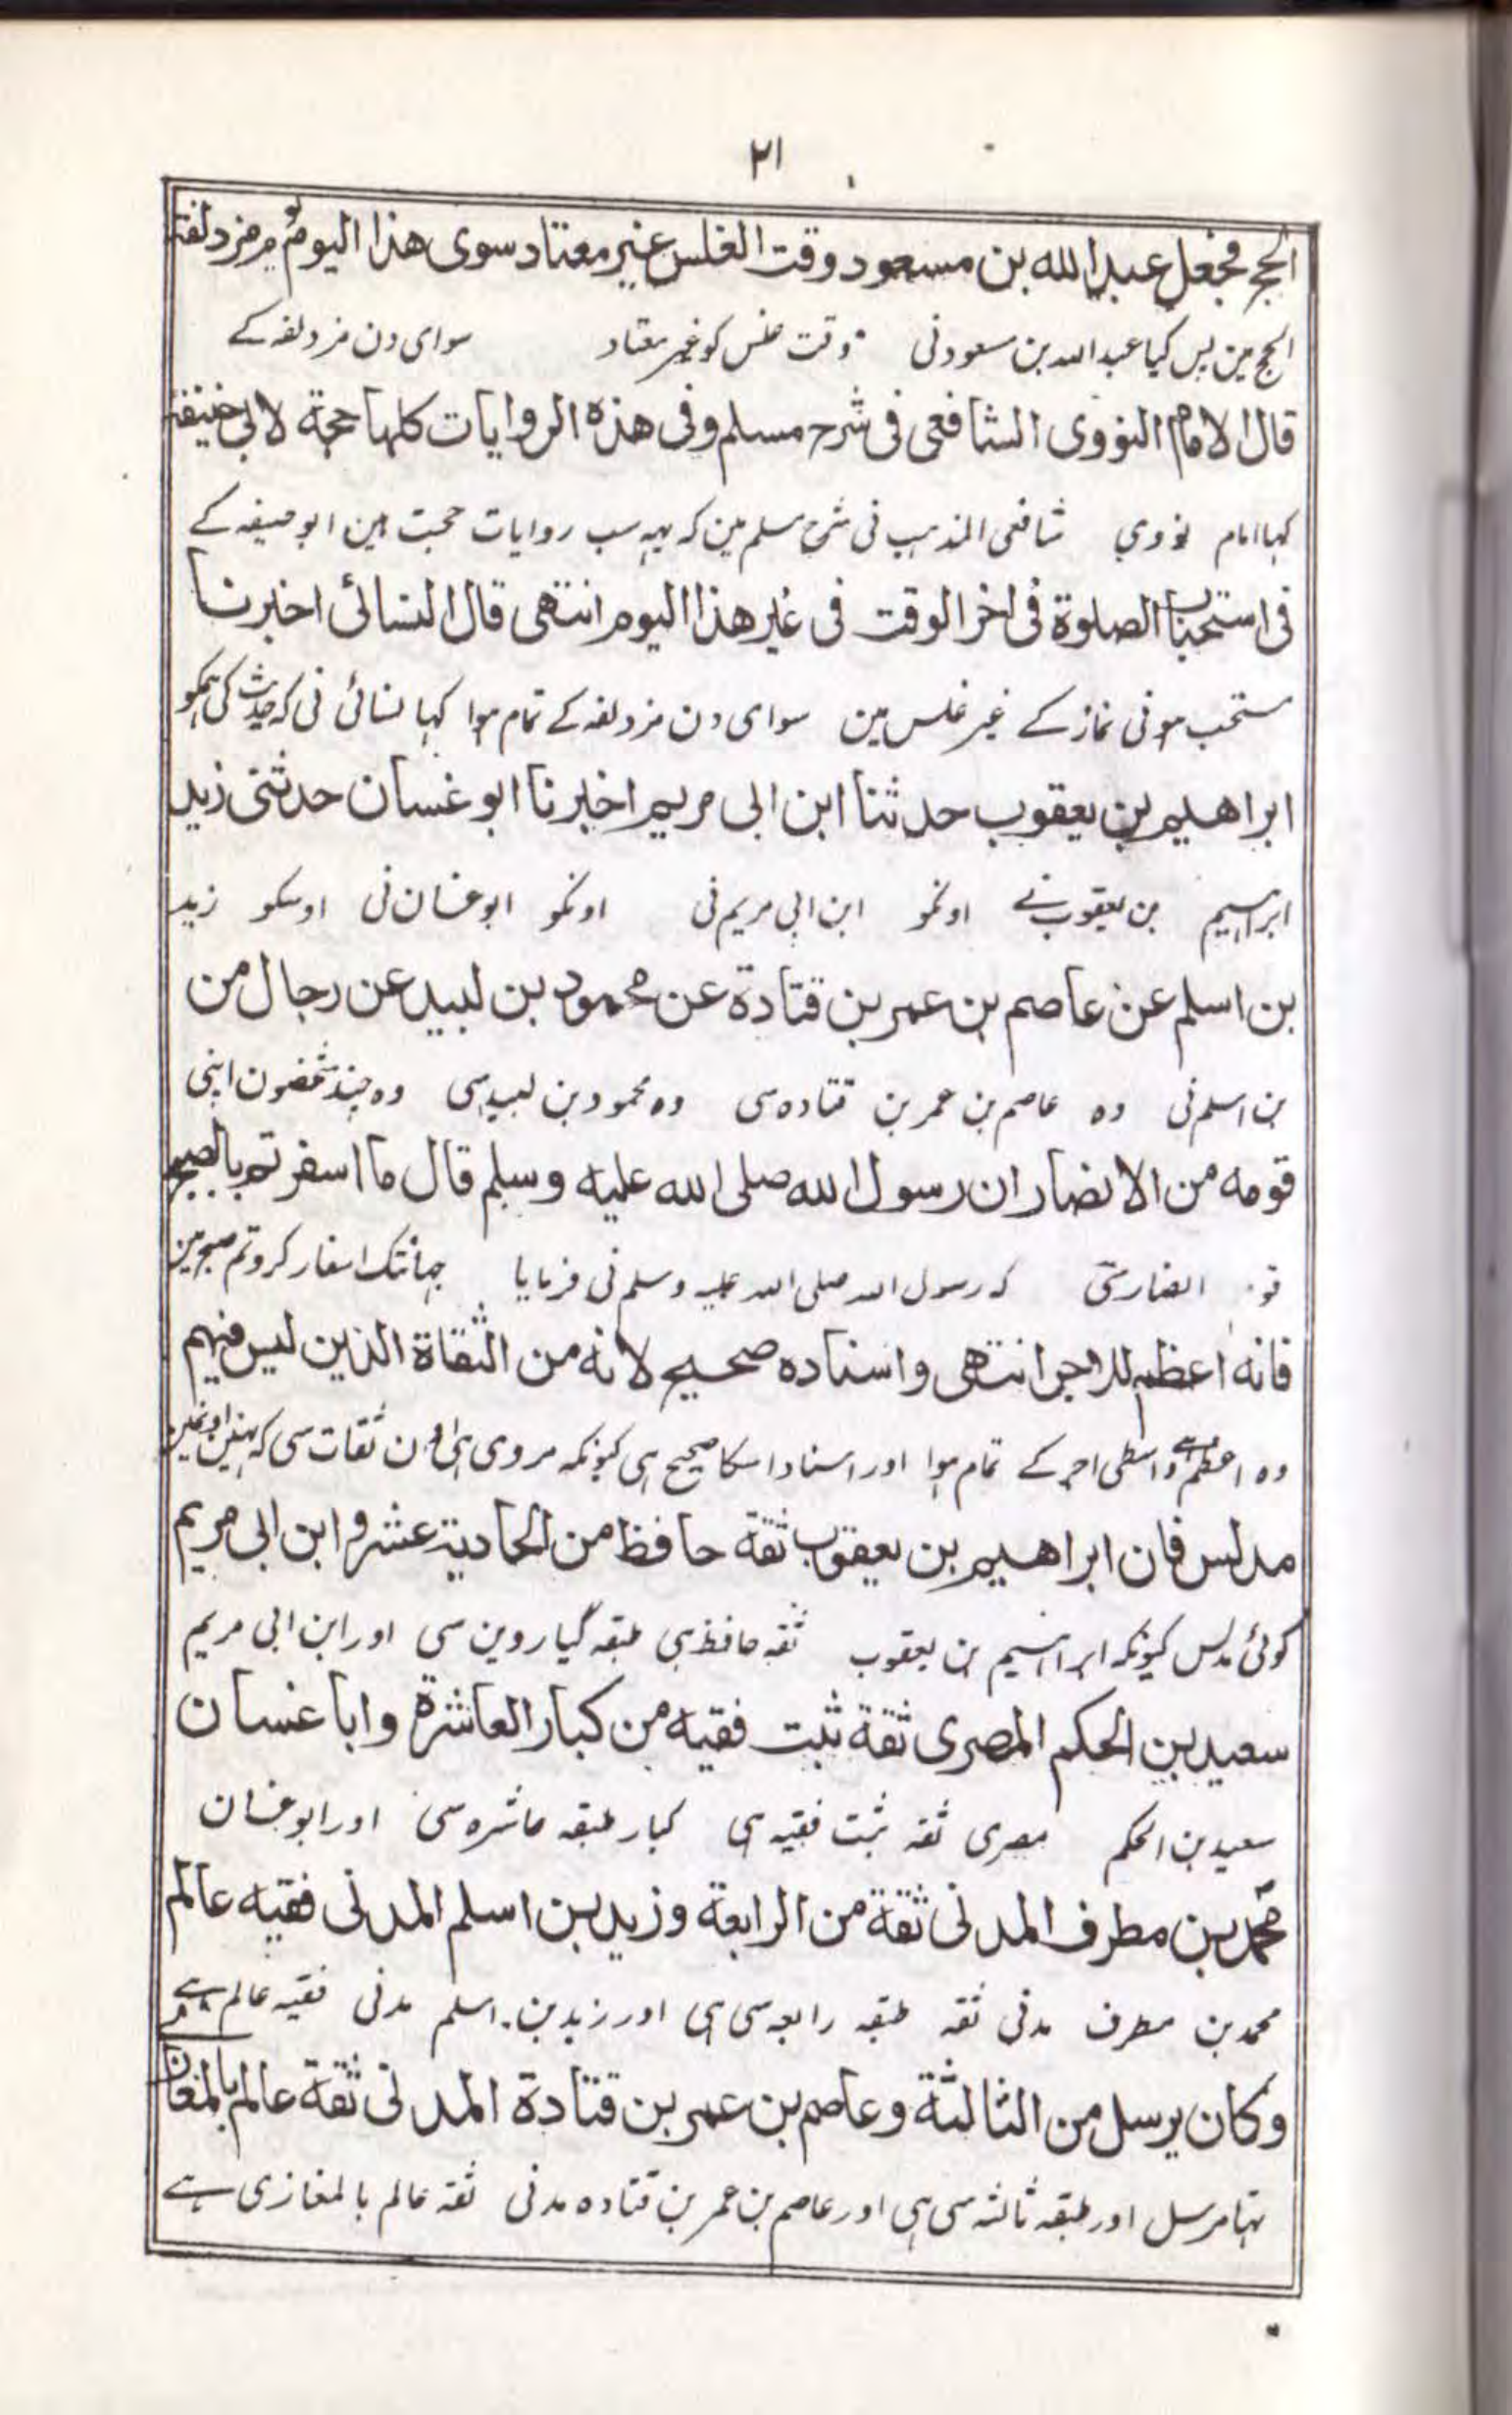 ۲۱
الحج فجعل عبد الله بن مسعود وقت الغلس غير معتاد سوى هذا اليوم يوم مزدلفة
الحج مین پس کیا عبد اللہ بن مسعود نی وقت غلس کو غیر معتاد سوای دن مزدلفہ کے
قال الامام النووى الشافعى فى شرح مسلم وفى هذه الروايات كلها حجة لابى حنيفة
کہا امام نووي شافعی المذہب نی شرح مسلم مین کہ یہہ سب روایات حجت ہین ابو حنیفہ کے
فى استحباب الصلوة فى اخر الوقت فى غير هذا اليوم انتهى قال النسائى اخبرنا
مستحب ہونی نماز کے غیر غلس مین سوای دن مزدلفہ کے تمام ہوا کہا نسائی نی کہ حدیث کی ہمکو
ابراهيم بن يعقوب حدثنا ابن ابى مريم اخبرنا ابو غسان حدثنى زيد
ابراہیم بن یعقوب نے اونکو ابن ابی مریم نی اونکو ابو غسان نی اوسکو زید
بن اسلم عن عاصم بن عمر بن قتادة عن محمود بن لبيد عن رجال من
بن اسلم نی وہ عاصم بن عمر بن قتادہ سی وہ محمود بن لبید سی وہ چند شخصون اپنی
قومه من الانصار ان رسول الله صلى الله عليه وسلم قال ما اسفرتم بالصبح
قو. انصار سی کہ رسول اللہ صلی اللہ علیہ وسلم نی فرمایا جہانتک اسفار کرو تم صبح مین
فانه اعظم للاجر انتهى واسناده صحيح لانه من الثقاة الذين ليس فيهم
وہ اعظم ہے واسطی اجر کے تمام ہوا اور اسناد اسکا صحیح ہی کیونکہ مروی ہی اون ثقات سی کہ نہین اونمین
مدلس فان ابراهيم بن يعقوب ثقة حافظ من الحادية عشر وابن ابى مريم
کوئی مدلس کیونکہ ابراہیم بن یعقوب ثقہ حافظ ہی طبقہ گیاروین سی اور ابن ابی مریم
سعيد بن الحكم المصرى ثقة ثبت فقيه من كبار العاشرة وابا غسان
سعید بن الحکم مصری ثقہ ثبت فقیہ ہی کبار طبقہ عاشرہ سی اور ابو غسان
محمد بن مطرف المدنى ثقة من الرابعة وزيد بن اسلم المدنى فقيه عالم
محمد بن مطرف مدنی ثقہ طبقہ رابعہ سی ہی اور زید بن اسلم مدنی فقیہ عالم ہے
وكان يرسل من الثالثة وعاصم بن عمر بن قتادة المدنى ثقة عالم بالمغازى
تہا مرسل اور طبقہ ثالثہ سی ہی اور عاصم بن عمر بن قتادہ مدنی ثقہ عالم بالمغازی ہے